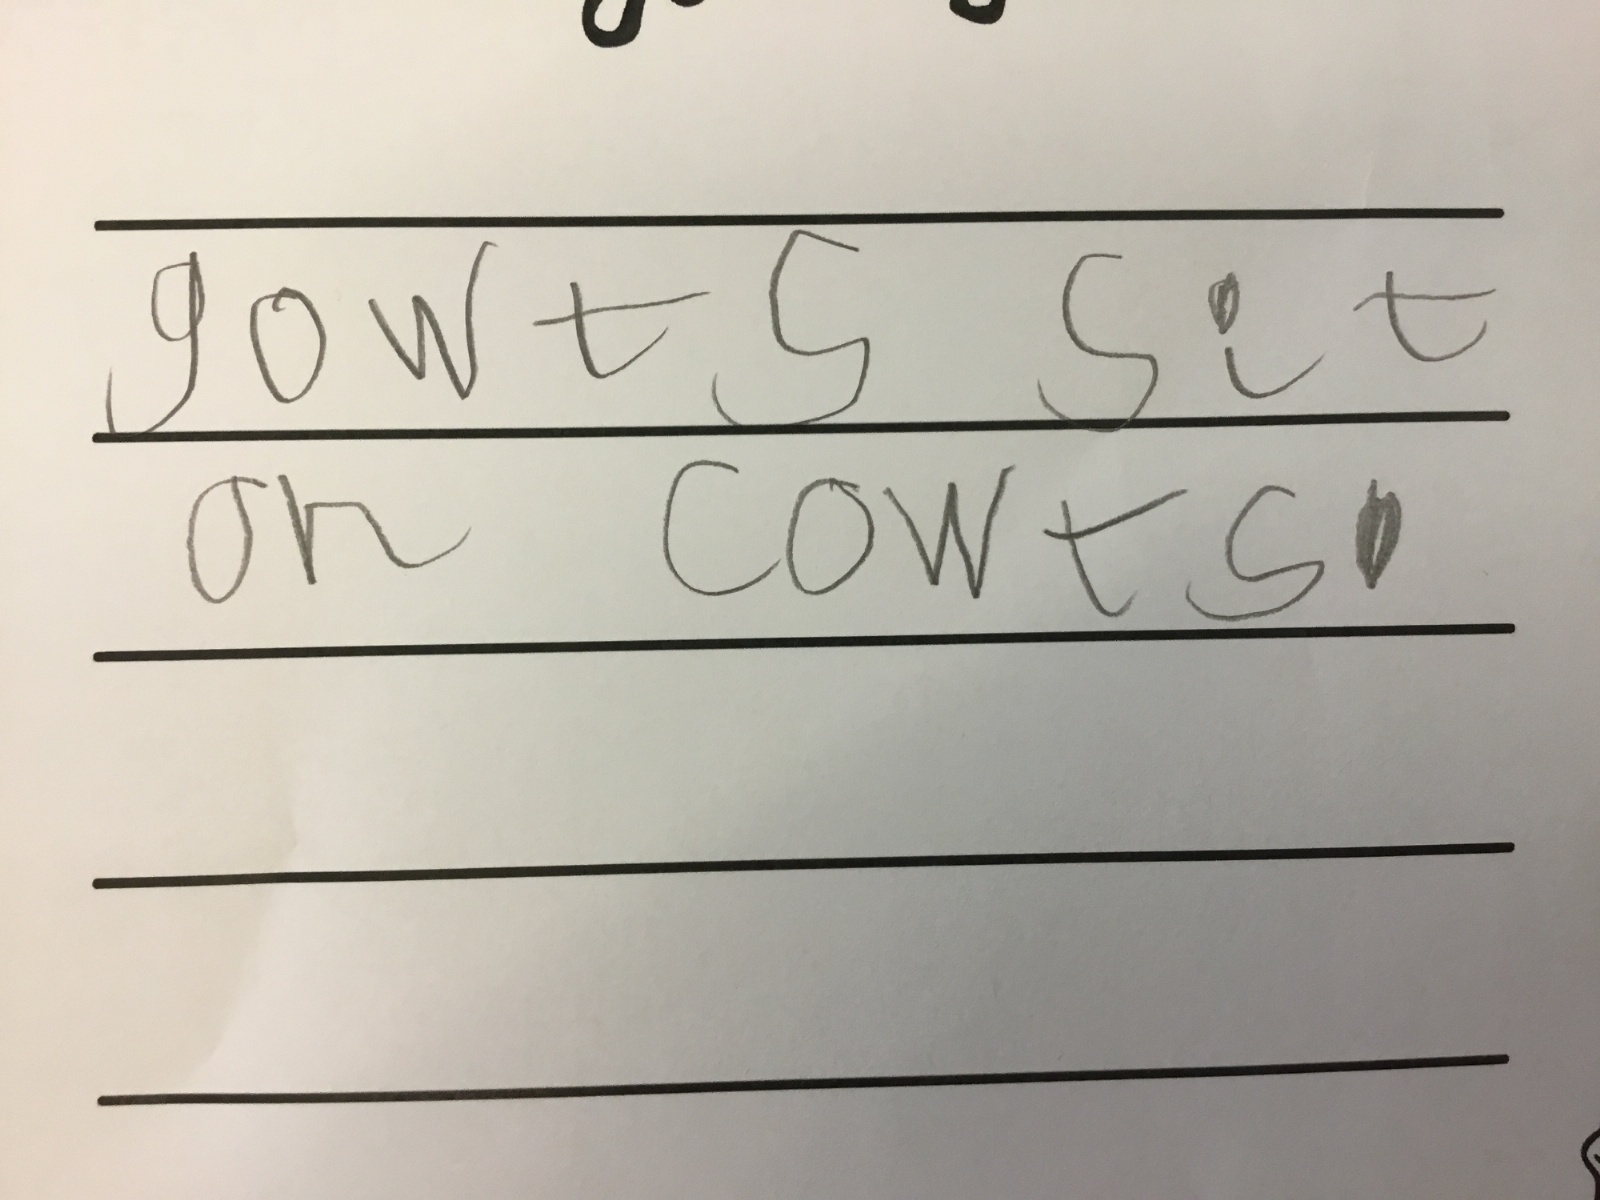 gowts sit
on cowts.